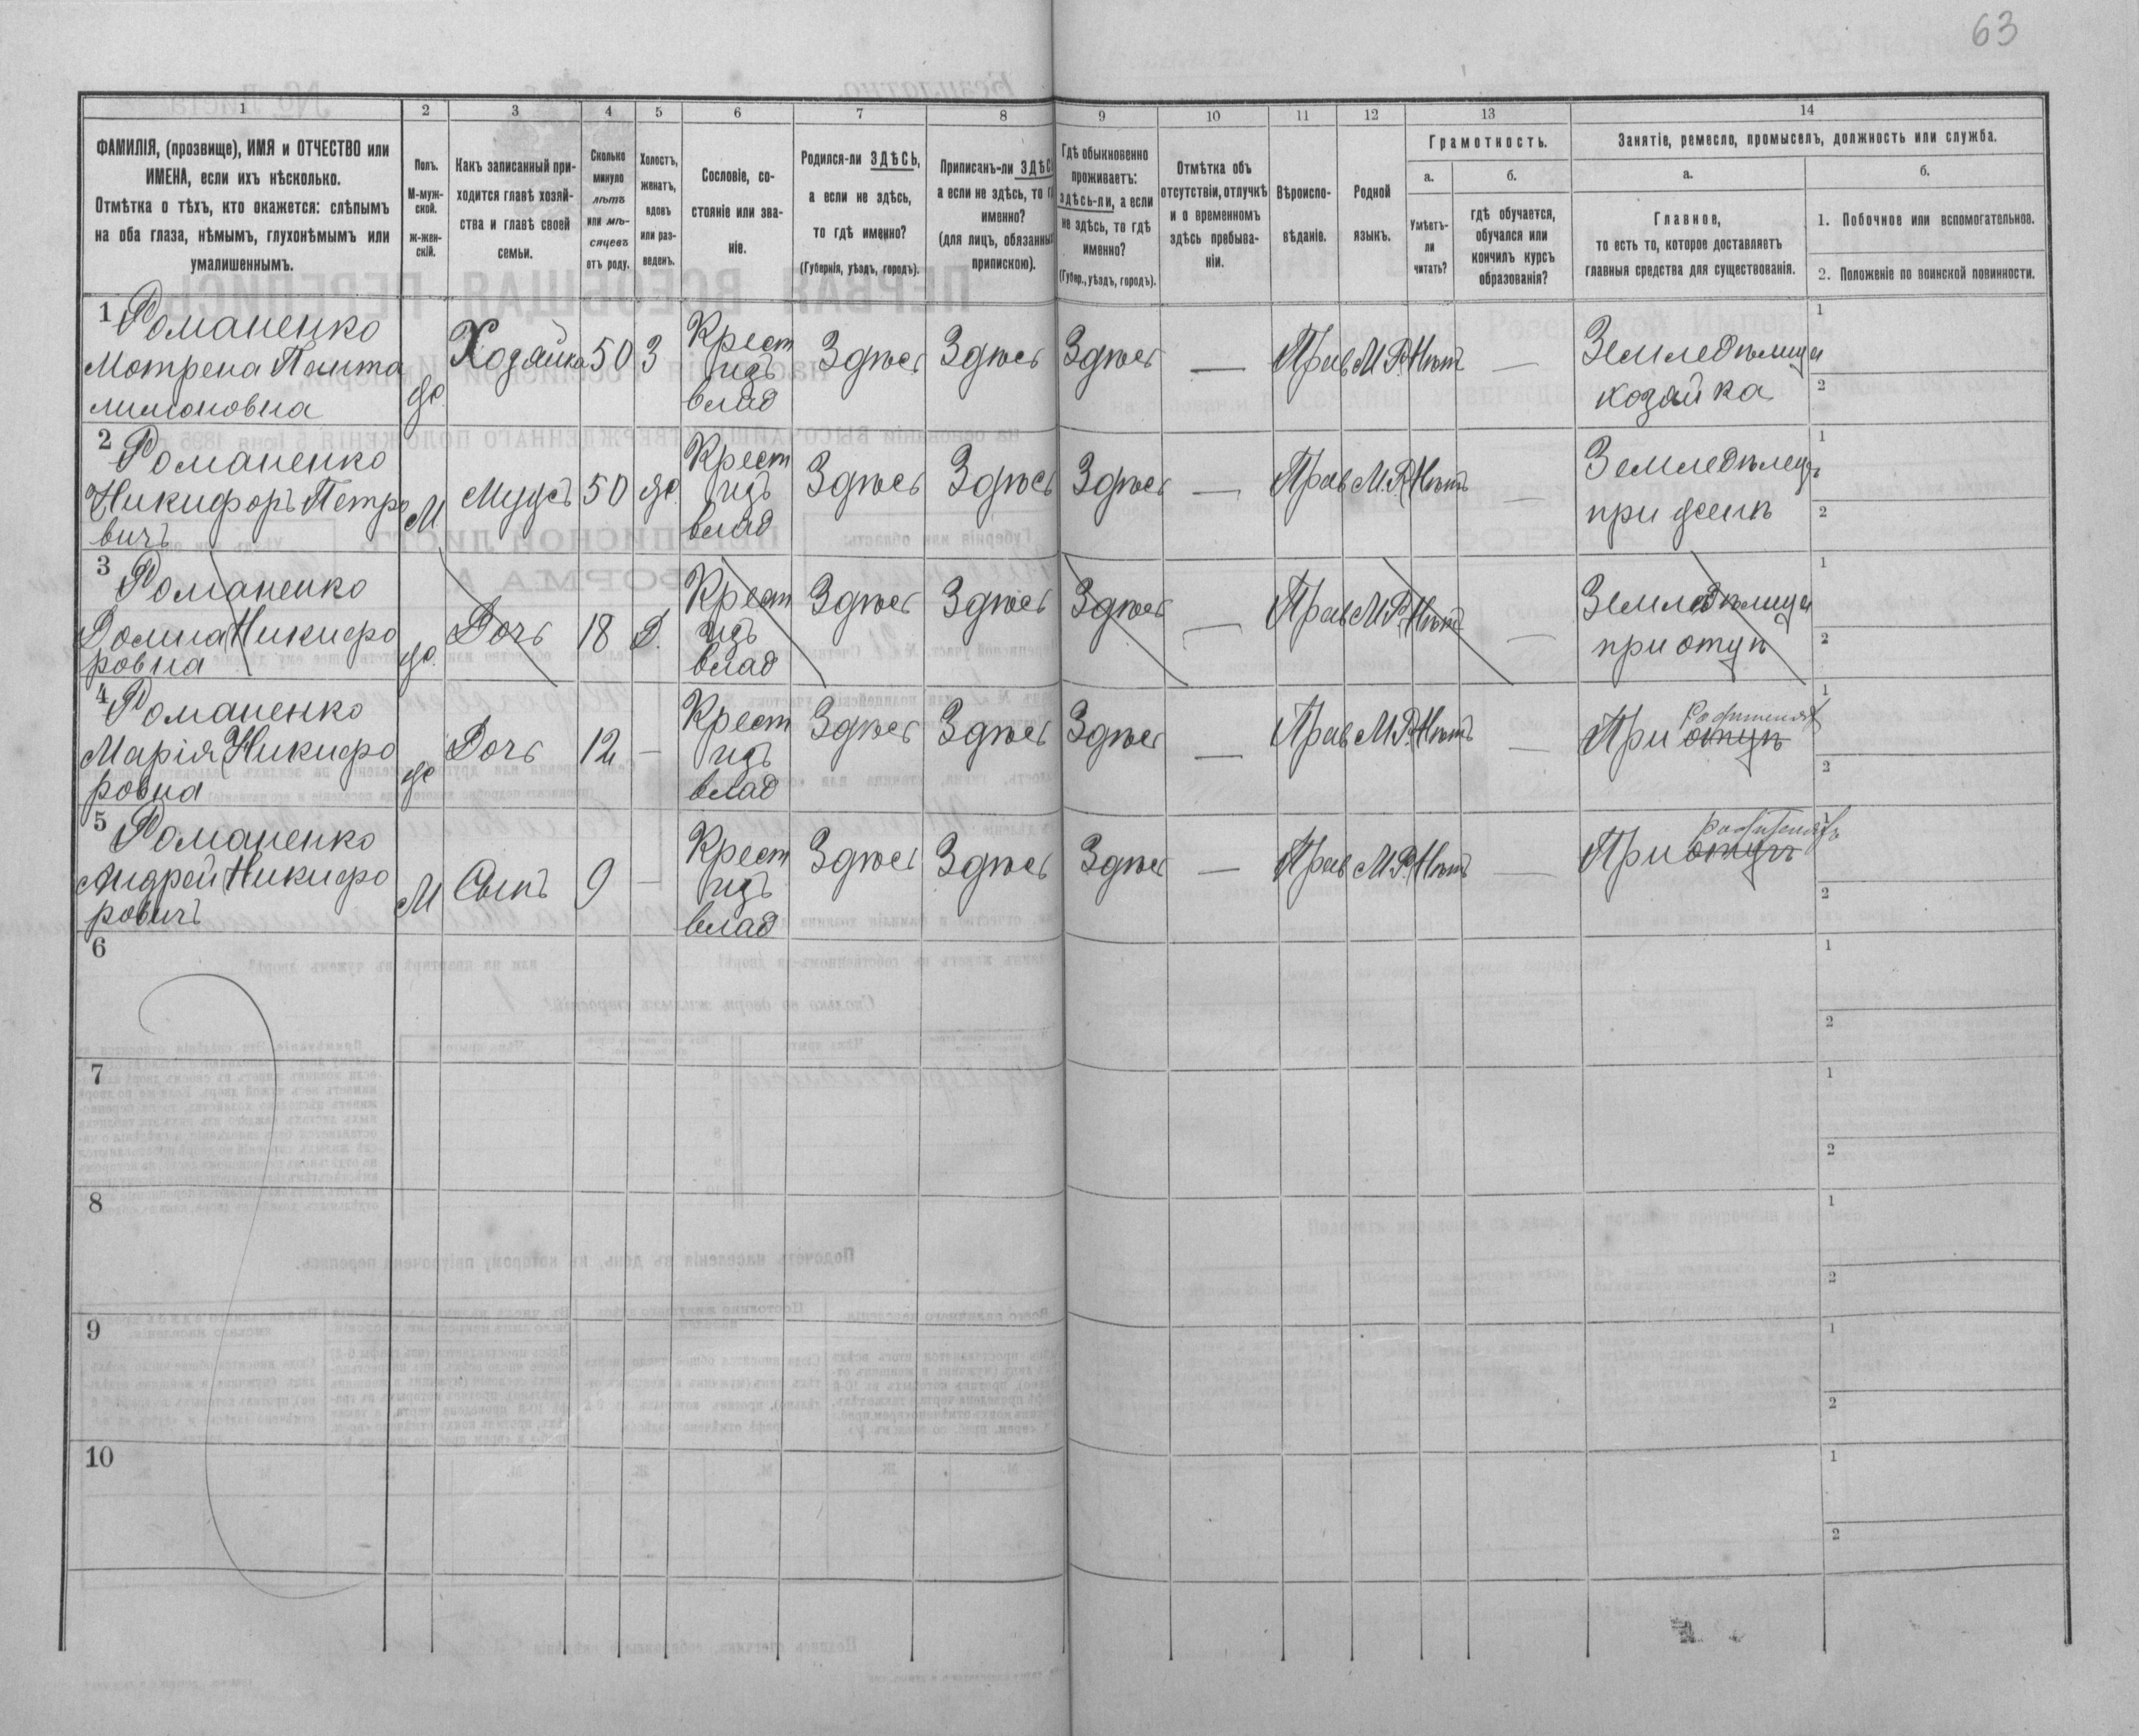 63
1 2 3 4 5 6 7 8 9 10 11 12 13 14
ФАМИЛІЯ, (прозвище), ИМЯ и ОТЧЕСТВО или
ИМЕНА, если ихъ нѣсколько.
Отмѣтка о тѣхъ, кто окажется: слѣпымъ
на оба глаза, нѣмымъ, глухонѣмымъ или
умалишеннымъ.
Полъ.
М-муж-
ской.
ж-жен-
скій.
Какъ записанный при-
ходится главѣ хозяй-
ства и главѣ своей
семьи.
Сколько
минуло
лѣтъ
или мѣ-
сяцевъ
отъ роду.
Холостъ,
женатъ,
вдовъ
или раз-
веденъ.
Сословіе, со-
стояніе или зва-
ніе.
Родился-ли ЗДѢСЬ,
а если не здѣсь,
то гдѣ именно?
(Губернія, уѣздъ, городъ).
Приписанъ-ли ЗДѢС
а если не здѣсь, то г
именно?
(для лицъ, обязанны
припискою).
Гдѣ обыкновенно
проживаетъ:
здѣсь-ли, а если
не здѣсь, то гдѣ
именно?
(Губер., уѣздъ, городъ).
Отмѣтка объ
отсутствіи, отлучкѣ
и о временномъ
здѣсь пребыва-
ніи.
Вѣроиспо-
вѣданіе.
Родной
языкъ.
Грамотность.
а.
Умѣетъ-
ли
читать?
б.
гдѣ обучается,
обучался или
кончилъ курсъ
образованія?
Занятіе, ремесло, промыселъ, должность или служба.
а.
Главное,
то есть то, которое доставляетъ
главныя средства для существованія.
б.
1. Побочное или вспомогательное.
2. Положеніе по воинской повинности.
1 Романенко
Мотрена Панта
лимоновна
ж.
Хозяйка
50
З
Крест
изъ
влад
Здѣсь
Здѣсь
Здѣсь
—
Прав
М.Р.
Нѣтъ
—
Земледѣлица
хозяйка
1
2
2 Романенко
Никифоръ Петро
вичъ
М
Мужъ
50
ж.
Крест
изъ
влад
Здѣсь
Здѣсь
Здѣсь
—
Прав
М.Р.
Нѣтъ
—
Земледѣлецъ
при женѣ
1
2
3 Романенко
Домна Никифо
ровна
ж.
Дочь
18
Д.
Крест
изъ
влад
Здѣсь
Здѣсь
Здѣсь
—
Прав
М.Р.
Нѣтъ
—
Земледѣлица
при отцѣ
1
2
4 Романенко
Марія Никифо
ровна
ж
Дочь
12
—
Крест
изъ
влад
Здѣсь
Здѣсь
Здѣсь
—
Прав
М.Р.
Нѣтъ
—
родителях
При отцѣ
1
2
5 Романенко
Андрей Никифо
ровичъ
М
Сынъ
9
—
Крест
изъ
влад
Здѣсь
Здѣсь
Здѣсь
—
Прав
М.Р.
Нѣтъ
—
родителяхъ
При отцѣ
1
2
6
1
2
7
1
2
8
1
2
9
1
2
10
1
2